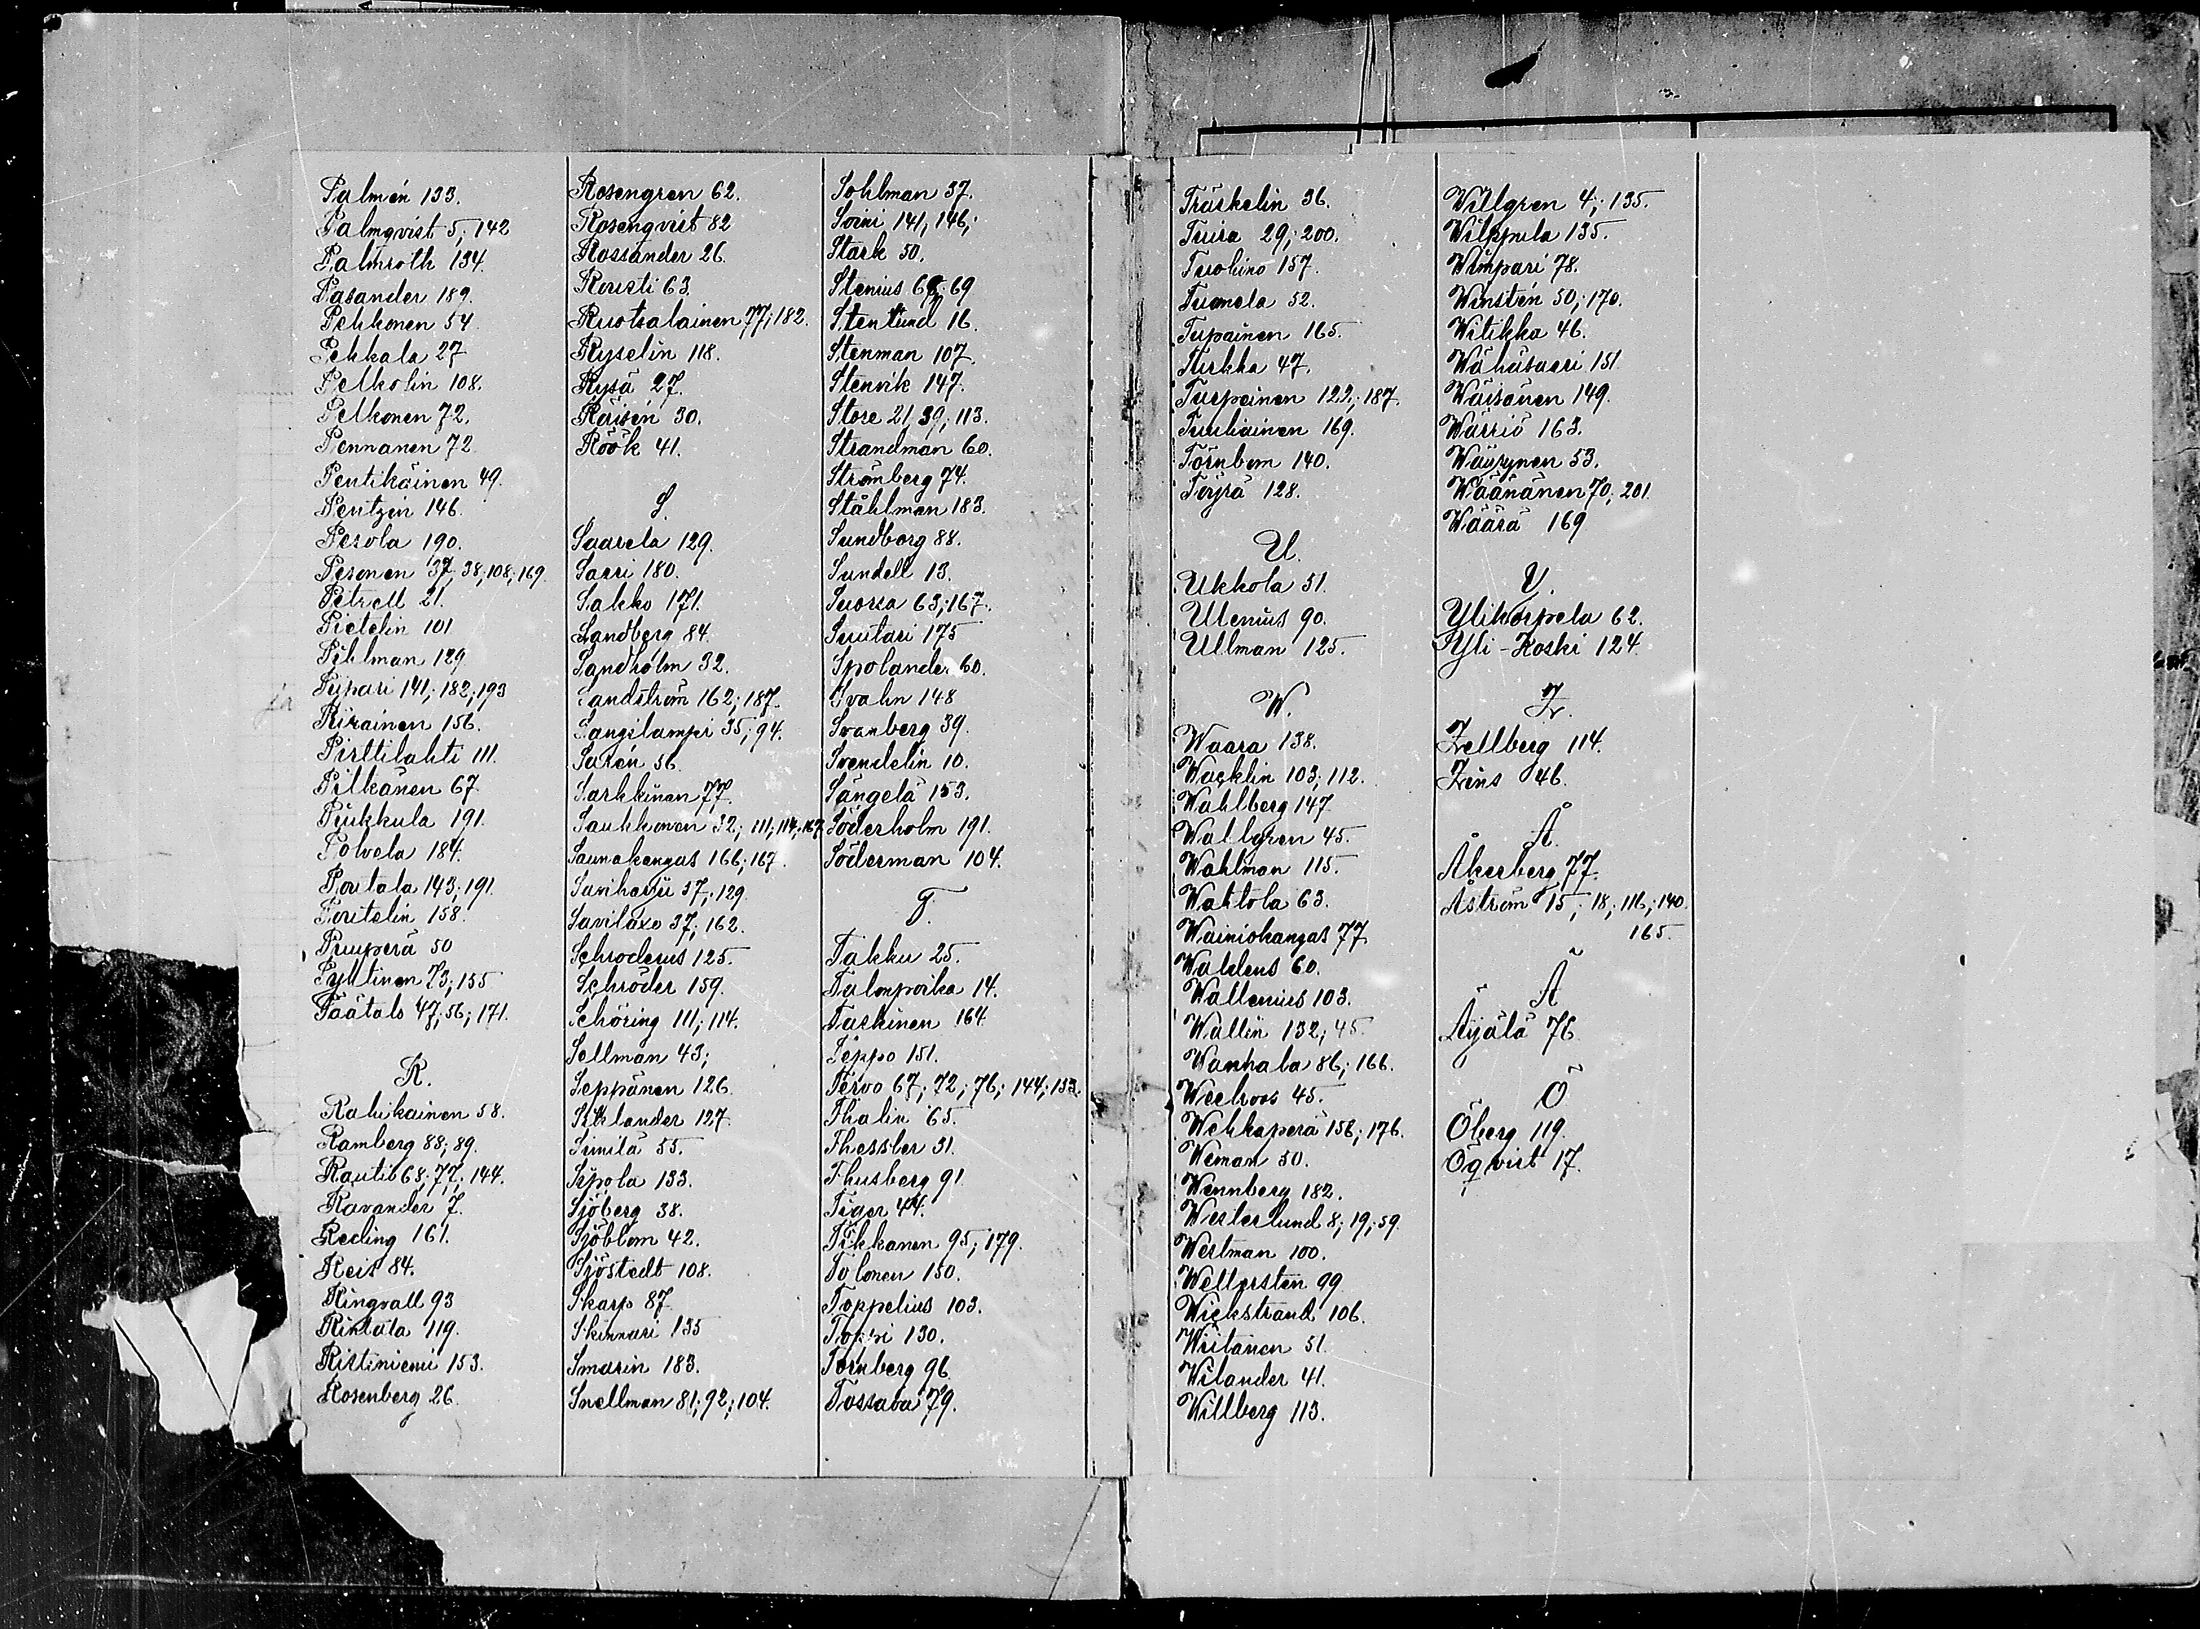 Palmén 133.
Palmqvist 5; 142
Palmroth 134.
Pasander 189.
Pekkonen 54
Pekkala 27
Pelkolin 108.
Pelkonen 72.
Pennanen 72
Pentikäinen 49.
Pentzin 146.
Pesola 190.
Pesonen 37; 38; 108; 169.
Petrell 21.
Pietelin 101
Pihlman 129
Piipari 141; 182; 193
Piirainen 156.
Pirttilahti 111.
Pitkänen 67.
Piukkula 191.
Polvela 184.
Poutala 143; 191.
Poutelin 158.
Puuperä 50
Pyktinen 73; 155
Päätalo 47; 56; 171.
R.
Rahikainen 58.
Ramberg 88; 89.
Rautio 68; 77; 144.
Ravander 7.
Reding 161.
Reis 84.
Ringvall 93
Rintala 119.
Ristiniemi 153.
Rosenberg 26.
Rosengren 62.
Rosenqvist 82
Rossander 26.
Rousti 63.
Ruotsalainen 77; 182.
Ryselin 118.
Rysä 27.
Räisén 30.
Röök 41.
S.
Saarela 129.
Saari 180.
Sakko 171.
Sandberg 84.
Sandholm 32.
Sandström 162; 187.
Sangilampi 35; 94.
Sarén 56.
Sarkkinen 77.
Saukkonen 32; 111; 114; 167.
Saunakangas 166; 167.
Saviharju 57; 129.
Savilaxo 37; 162.
Schroderus 125.
Schröder 159.
Schöring 111; 114.
Sellman 43;
Seppänen 126.
Siklander 127.
Simila 55.
Sipola 133.
Sjöberg 38.
Sjöblom 42.
Sjöstedt 108.
Skarp 87.
Skinnari 135
Smarin 183.
Snellman 81; 92; 104.
Sohlman 37.
Soini 141; 146;
Stark 50.
Stenius 68; 69
Stenlund 16.
Stenman 107.
Stenvik 147.
Store 21, 39; 113.
Strandman 60.
Strömberg 74.
Ståhlman 183.
Sundborg 88.
Sundell 13.
Suorsa 63; 167.
Suutari 175
Spolander 60.
Svahn 148
Svanberg 39.
Svendelin 10.
Sängelä 153.
Söderholm 191.
Söderman 104.
T.
Takku 25.
Talonpoika 14.
Taskinen 164
Teppo 151.
Tervo 67; 72; 76; 144; 133.
Thalin 65.
Thessler 31.
Thusberg 91.
Tiger 44.
Tikkanen 95; 179.
Tolonen 150.
Toppelius 103.
Toppi 130.
Tornberg 96.
Tossava 79.
Träskelin 36.
Tuira 29; 200.
Tuohino 157.
Tuomela 52.
Tupainen 165.
Turkka 47.
Turpeinen 122; 187.
Tuuliainen 169.
Törnbom 140.
Töyrä 128.
U.
Ukkola 51.
Ulenius 90.
Ullman 125.
W.
Waara 138.
Wacklin 103; 112.
Wahlberg 147
Wallgren 45.
Wahlman 115.
Wahlola 63.
Wainiokangas 77
Waldens 60.
Wallenius 103.
Wallin 132; 45.
Wanhala 86; 166.
Weckroos 45.
Wehkaperä 156; 176.
Weman 50.
Wennberg 182.
Westerlund 8; 19; 59.
Westman 100.
Wettersten 99.
Wickstrand 106.
Wiitanen 51.
Wilander 41.
Willberg 113.
Willgren 4; 135.
Wilppula 135.
Wimpari 78.
Winstén 50; 170.
Witikka 46.
Wähäsaari 151
Wäisänen 149.
Wärriö 163.
Wäyrynen 53.
Wäänänen 70; 201.
Wäärä 169
Y.
Ylikorpela 62.
Yli-Koski 124.
Z.
Zellberg 114.
Zins 46.
Å.
Åkerberg 77.
Åström 15; 18; 116; 140.
165.
Ä
Äijälä 76
Ö
Öberg 119.
Öqvist 17.